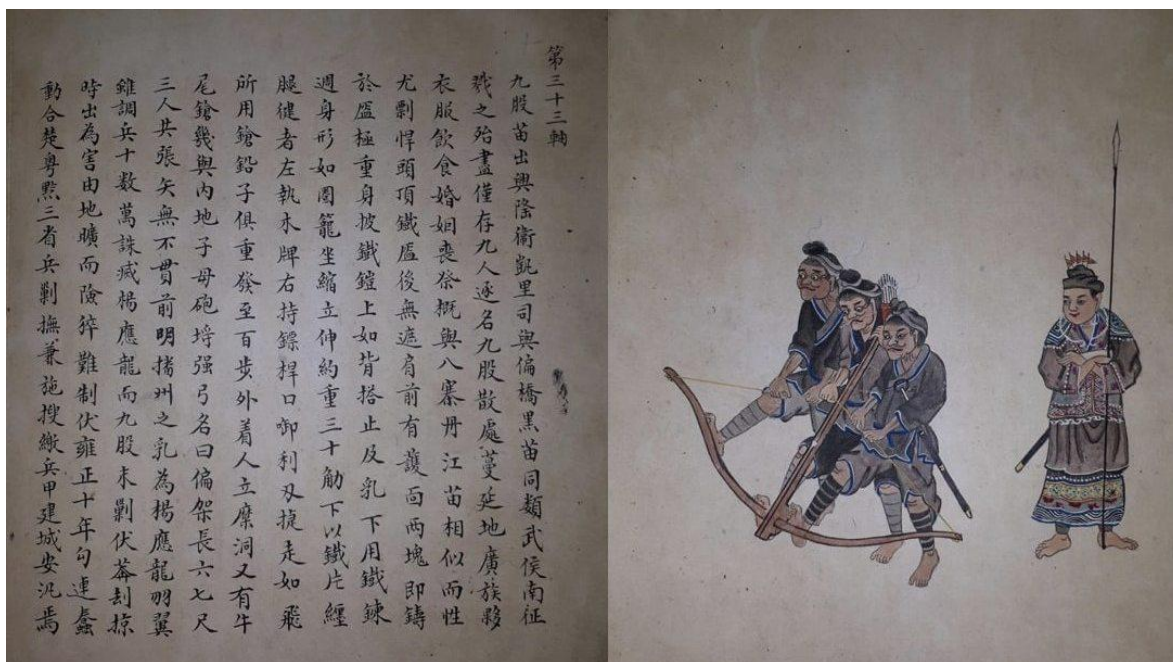 第三十三軸
九股苗出興隆衛凱里司與偏橋黑苗同類武侯南征
戮之殆盡僅存九人逐名九股散處蔓延地廣族夥
衣服飲食婚姻喪祭概與八寨丹江苗相似而性
尤剽悍頭頂鐵盔後無遮肩前有護面兩塊即鑄
於盔極重身披鐵鎧上如背搭止及乳下用鐵鍊
週身形如圈籠坐縮立伸約重三十觔下以鐵片纏
腿健者左執木牌右持鏢桿口啣利刃捷走如飛
所用鎗鉛子俱重發至百步外着人立糜洞又有牛
尾鎗幾與內地子母砲埒强弓名曰偏架長六七尺
三人共張矢無不貫前明播州之乱為楊應龍羽翼
雖調兵十数萬誅滅楊應龍而九股未剿伏莽刦掠
時出為害由地曠而險猝難制伏雍正十年勾連蠢
動合楚粵黔三省兵剿撫兼施搜繳兵甲建城安汛焉